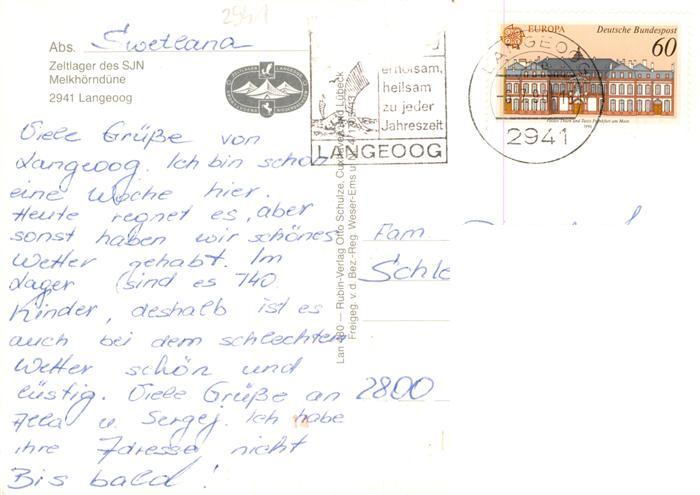 2941
Abs. Swetlana
Zeltlager des SJN
Melkhörndüne
2941 Langeoog
Viele Grüße von
Langeoog. Ich bin schon
eine Woche hier.
Heute regnet es, aber
sonst haben wir schönes
Wetter gehabt. Im
Lager (sind es 740
Kinder, deshalb ist es
auch bei dem schlechten
Wetter schön und
lustig. Viele Grüße an
Alla u. Sergej. Ich habe
ihre Adresse nicht
Bis bald!
erholsam,
heilsam
zu jeder
Jahreszeit
LANGEOOG
EUROPA
Deutsche Bundespost
60
Palais Thurn und Taxis Frankfurt am Main
1990
LANGEOOG
2941
Lan 480 — Rubin-Verlag Otto Schulze, Cuxhaven und Lübeck
Freigeg. v. d. Bez.-Reg. Weser-Ems
Fam.
Schle
2800